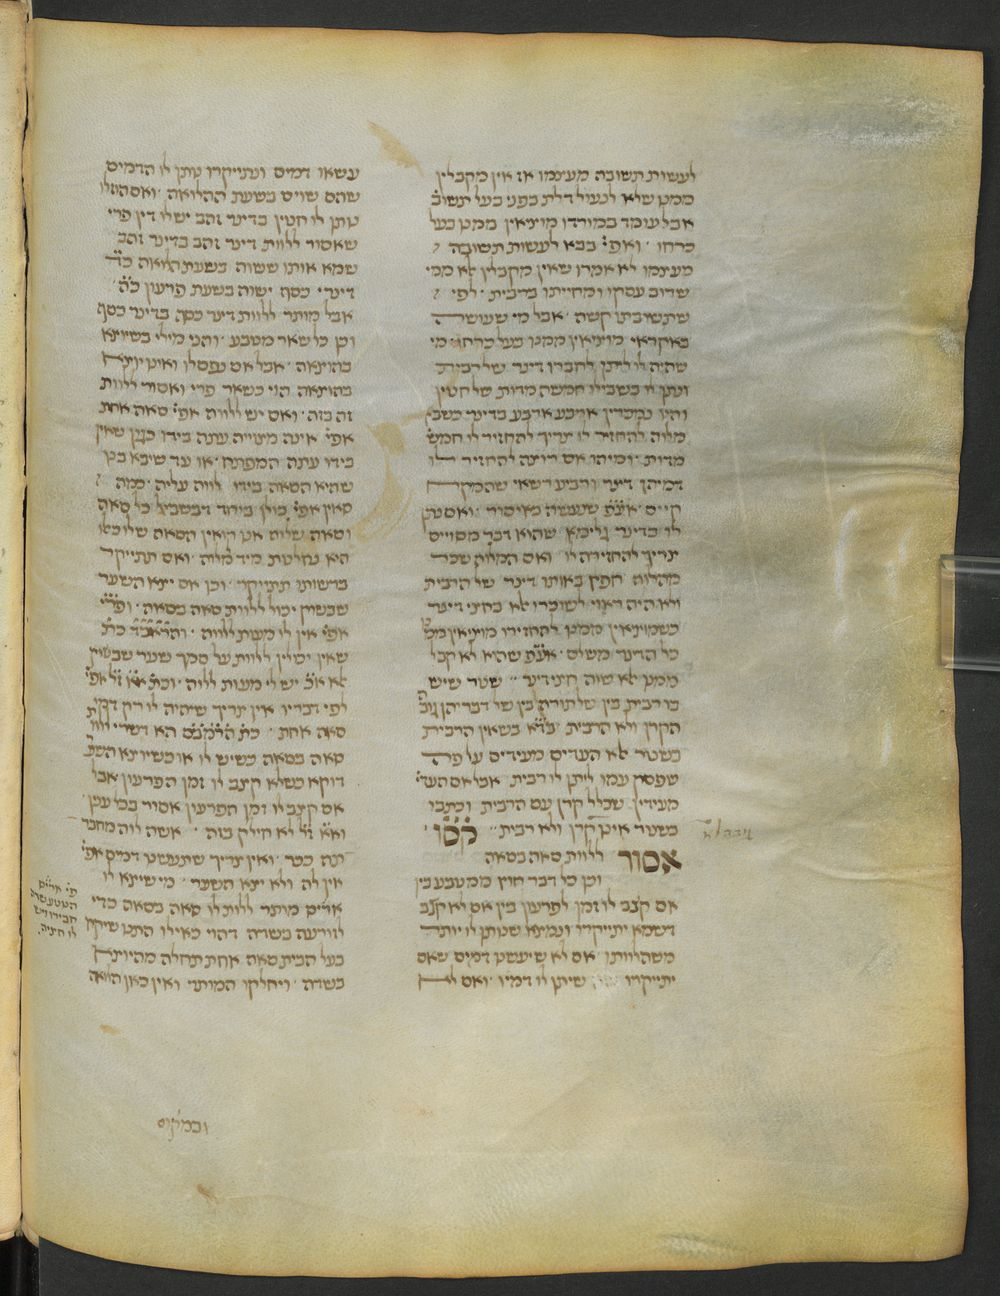 לעשות תשובה מעצמו אז אין מקבלין
ממנו שלא לנעול דלת בפני בעל תשוב׳
אבל עומד במורדו מוציאין ממנו בעל
כרחו ׳ ואפי׳ בבא לעשות תשובה
מעצמו לא אמרו שאין מקבלין לא ממי
שרוב עסקו ומחייתו ברבית ׳ לפי
שתשובתו קשה ׳ אבל מי שעושה
באקראי מוציאין ממנו בעל כרחו מי
שהיה לו ליתן לחברו דינר של רבית
ונתן לו בשבילו חמשה מדות של חטין
והיו נמכרין ארבע ארבע בדינר כשבא
מלוה להחזיר לו צריך להחזיר לו חמש
מדות ׳ ומיהו אם רוצה להחזיר לו
דמיהן דינר ורביע רשאי שהמקח
קיים אע״פ שנעשה באיסור ׳ ואם נתן
לו בדינר גלימא שהוא דבר מסויים
צריך להחזירה לו ׳ ואם המלוה שכר
מהלוה חפץ באותו דינר של הרבית
ולא היה ראוי לשוכרו לא בחצי דינר
כשמוציאין ממנו להחזירו מוציאין ממנ׳
כל הדינר משלם ׳ אע״פ שהוא לא קבל
ממנו לא שוה חצי דינר ׳׳ שטר שיש
בו רבית בין של תורה בין של דבריהן גובה
הקרן ולא הרבית בד״א בשאין הרבית
בשטר לא העדים מעידים על פה
שפסק עמו ליתן לו רבית ׳ אבל אם העדי׳
מעידין שכלל קרן עם הרבית וכתבו
בשטר אינו קרן ולא רבית ׳׳ קסו ׳
אסור ללוות סאה בסאה
וכן כל דבר חוץ ממטבע בין
אם קצב לו זמן לפרעון בין אם לא קצב
דשמא יתייקרו ונמצא שנותן לו יותר
משהלוותו ׳ אם לא שיעשנו דמים שאם
יתייקרו שיתן לו דמיו ׳ ואם לא
עשאו דמים ונתייקרו נותן לו הדמים
שהם שוים בשעת ההלואה ׳ ואם הוזלו
נותן לו חטין בדינר זהב יש לו דין פרי
שאסור ללוות דינר זהב בדינר זהב
שמא אותו ששוה בשעת הלואה כ״ד
דינרי כסף ישוה בשעת פרעון כ״ה
אבל מותר ללוות דינר כסף בדינר כסף
וכן כל שאר מטבע ׳ והני מילי בשיוצא
בהוצאה ׳ אבל אם נפסלו ואינן יוצאות
בהוצאה הוי כשאר פרי ואסור ללוות
זה בזה ׳ ואם יש ללווה אפי׳ סאה אחת
אפי׳ אינה מצוייה עתה בידו כגון שאין
בידו עתה המפתח ׳ או עד שיבא בנו
שהיא הסאה בידו לווה עליה ׳ כמה
סאין אפי׳ כולן ביחד דבשביל כל סאה
וסאה שלוה אנו רואין הסאה שלו כאלו
היא נחלטת מיד למלוה ׳ ואם תתייקר
ברשותו תתייקר ׳ וכן אם יצא השער
שבשוק יכול ללוות סאה בסאה ׳ ופר״י
אפי׳ אין לו מעות ללווה ׳ והראב״ד כת׳
שאין יכולין ללוות על סמך שער שבשוק
לא א״כ יש לו מעות ללוה ׳ וכת׳ א״א ז״ל אפי׳
לפי דבריו אין צריך שיהיה לו רק דמי
סאה אחת ׳ כת׳ הרמב״ם הא דשרי ללוות
סאה בסאה כשיש לו או כשיוצא השע׳
דוקא כשלא קצב לו זמן הפרעון אבל
אם קצב לו זמן הפרעון אסור בכל ענין
וא״א ז״ל לא חילק בזה ׳ אשה לוה מחבר
תה ככר ׳ ואין צריך שתעשנו דמים אפי׳
אין לה ולא יצא השער ׳ מי שיוצא לו
אריס מותר ללוות לו סאה בסאה כדי
לזורעה בשדה דהוי כאילו התנו שיקח
בעל הבית סאה אחת תחלה מהיוצא
בשדה ׳ ויחלקו המותר ואין כאן הלואה
פי׳ אריס
לו חציה.
ובמקום